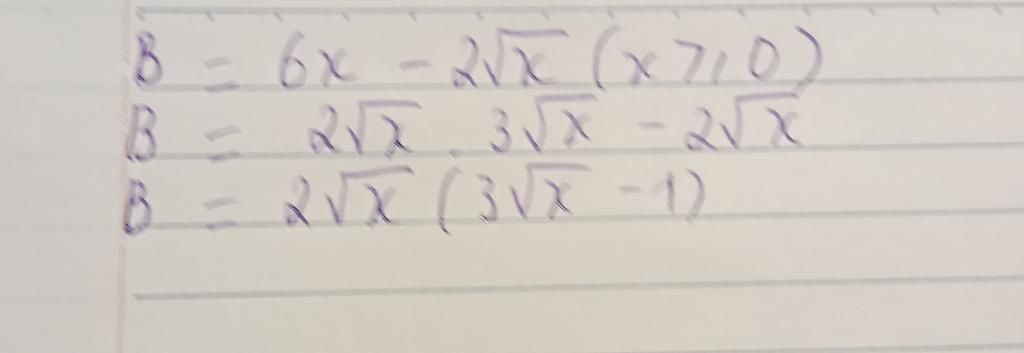 B = 6x - 2√x (x ⩾ 0)
B = 2√x . 3√x - 2√x
B = 2√x (3√x - 1)